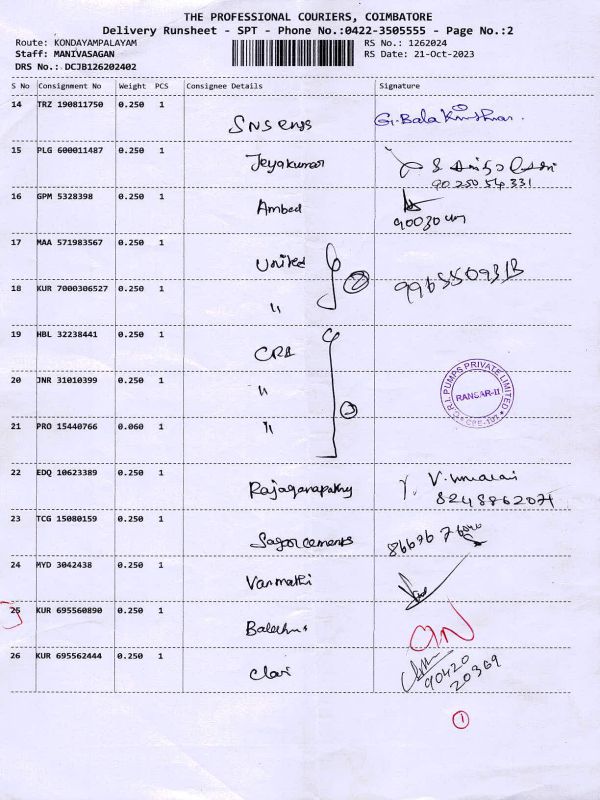 THE PROFESSIONAL COURIERS, COIMBATORE
Delivery Runsheet - SPT - Phone No.:0422-3505555 - Page No.:2
Route: KONDAYAMPALAYAM RS No.: 1262024
Staff: MANIVASAGAN RS Date: 21-Oct-2023
DRS No.: DCJB126202402
S No Consignment No Weight PCS Consignee Details Signature
14 TRZ 190811750 0.250 1 G. Bala Krishnan.
15 PLG 600011487 0.250 1 Jeyakumar
90 250 54 331
16 GPM 5328398 0.250 1 Ambed
17 MAA 571983567 0.250 1 United
18 KUR 7000306527 0.250 1 "
19 HBL 32238441 0.250 1 CRI
20 JNR 31010399 0.250 1 "
C.R.I. PUMPS PRIVATE LIMITED
RANGAR-II
21 PRO 15440766 0.060 1 "
22 EDQ 10623389 0.250 1 Rajaganapathy
23 TCG 15080159 0.250 1 Sagar cements
24 MYD 3042438 0.250 1 Vanmathi
25 KUR 695560890 0.250 1
26 KUR 695562444 0.250 1
90420
20369
1